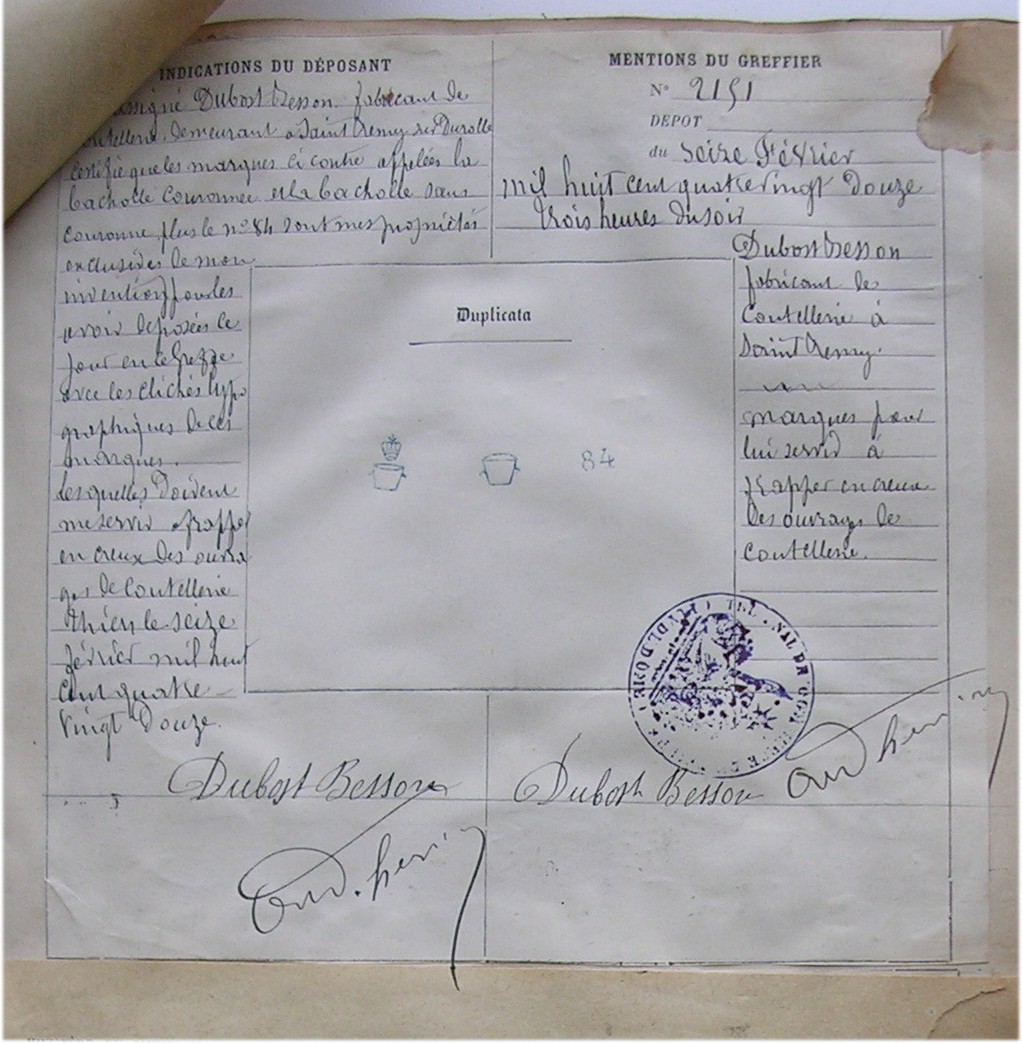 INDICATIONS DU DÉPOSANT
Dubost Besson fabricant de
coutellerie, demeurant à Saint Remy sur Durolle
certifie que les marques ci contre appelées la
bacholle couronnée et la bacholle sans
couronne, plus le nº 84 sont mes propriétés
exclusives de mon
invention, pour les
avoir déposées ce
jour en le greffe
avec les clichés typo
graphiques de ces
marques.
Lesquelles doivent
me servir à frapper
en creux des ouvra
ges de coutellerie
Thiers le seize
février mil huit
cent quatre
vingt douze.
Dubost Besson
MENTIONS DU GREFFIER
Nº 2151
DEPOT
du seize Février
mil huit cent quatre vingt douze
trois heures du soir
Dubost Besson
fabricant de
coutellerie à
Saint Remy.
marques pour
lui servir à
frapper en creux
des ouvrages de
coutellerie.
Duplicata
84
Dubost Besson